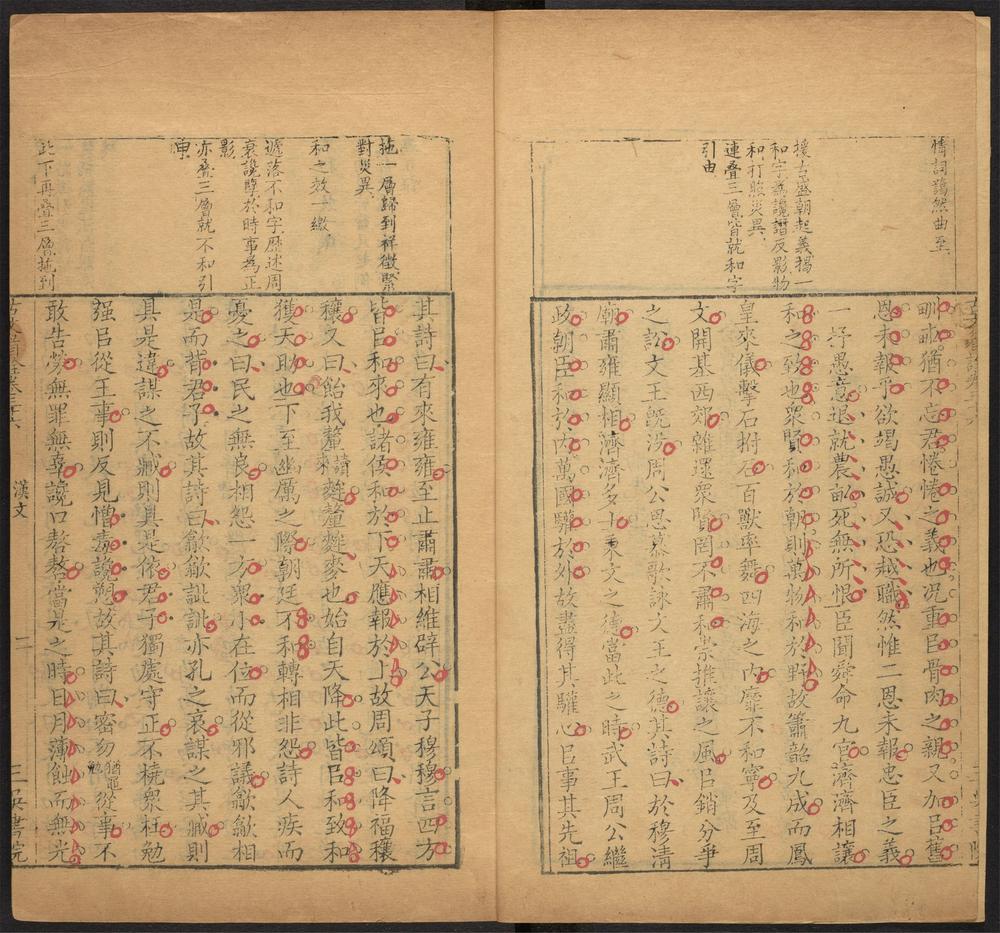 情詞藹然曲至
援古盛朝起義揭一
和字為讒譖反影物
和打照災異
連叠三層皆就和字
引由
畎畝猶不忘君惓惓之義也况重㠯骨肉之親又加㠯舊
恩未報乎欲竭愚誠又恐越職然惟二恩未報忠臣之義
一抒愚意退就農畝死無所恨臣聞舜命九官濟濟相讓
和之致也衆賢和於朝則萬物和於野故簫韶九成而鳳
皇來儀擊石拊石百獸率舞四海之内靡不和寧及至周
文開基西郊雜遝衆賢罔不肅和崇推讓之風㠯銷分爭
之訟文王旣没周公思慕歌詠文王之德其詩曰於穆清
廟肅雍顯相濟濟多士秉文之德當此之時武王周公繼
政朝臣和於内萬國驩於外故盡得其驩心㠯事其先祖
拖一層歸到祥徵緊
對災異
和之效一繳
遞落不和字歷述周
衰讒孽於時事為正
影
亦叠三層就不和引
伸
此下再叠三層拖到
其詩曰有來雍雍至止肅肅相維辟公天子穆穆言四方
皆㠯和來也諸侯和於下天應報於上故周頌曰降福穰
穰又曰飴我釐麰釐麰麥也始自天降此皆㠯和致和
獲天助也下至幽厲之際朝廷不和轉相非怨詩人疾而
憂之曰民之無良相怨一方衆小在位而從邪議歙歙相
是而背君子故其詩曰歙歙訿訿亦孔之哀謀之其臧則
具是違謀之不臧則具是依君子獨處守正不橈衆枉勉
强㠯從王事則反見憎毒讒愬故其詩曰密勿從事不
敢告勞無罪無辜讒口嗸嗸當是之時日月薄蝕而無光
漢文
二